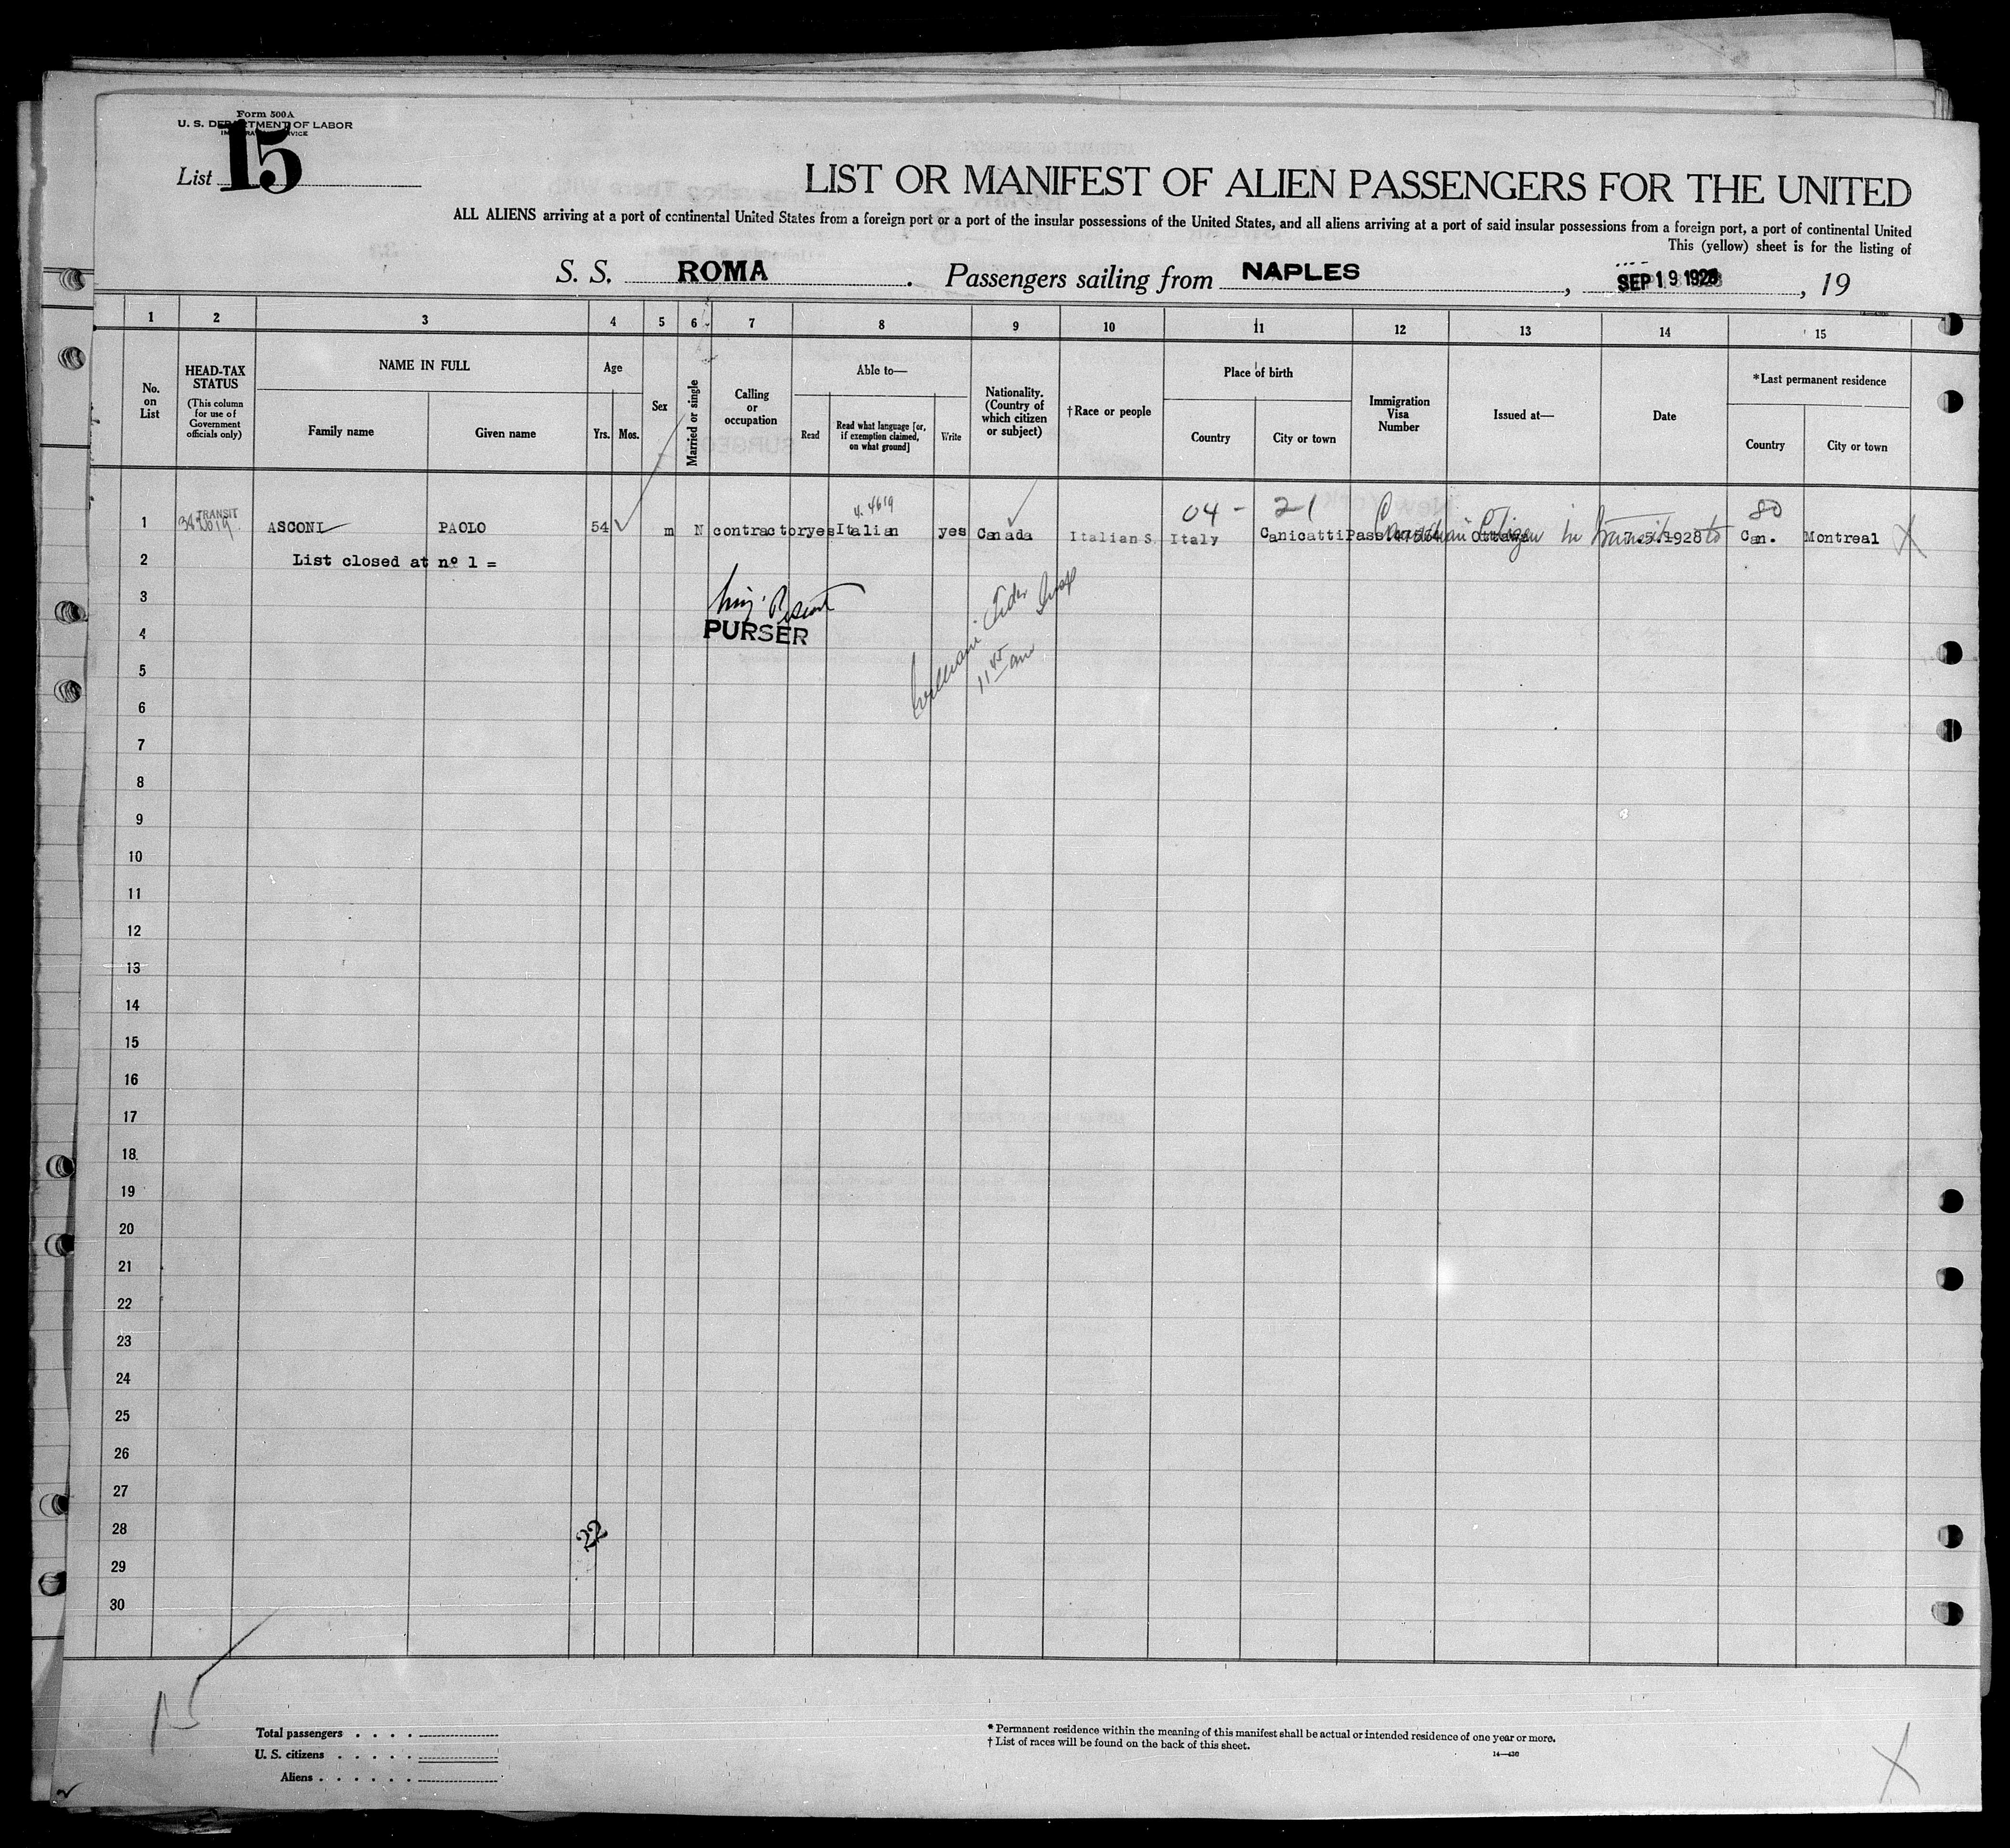 Form 500A
U. S. DEPARTMENT OF LABOR
IMMIGRATION SERVICE
List 15
LIST OR MANIFEST OF ALIEN PASSENGERS FOR THE UNITED
ALL ALIENS arriving at a port of continental United States from a foreign port or a port of the insular possessions of the United States, and all aliens arriving at a port of said insular possessions from a foreign port, a port of continental United
This (yellow) sheet is for the listing of
S. S. ROMA. Passengers sailing from NAPLES, SEP 19 1928, 19
1 2 3 4 5 6 7 8 9 10 11 12 13 14 15
No. on List
HEAD-TAX STATUS (This column for use of Government officials only)
NAME IN FULL
Family name
Given name
Age
Yrs. Mos.
Sex
Married or single
Calling or occupation
Able to—
Read
Read what language [or, if exemption claimed, on what ground]
Write
Nationality. (Country of which citizen or subject)
†Race or people
Place of birth
Country
City or town
Immigration Visa Number
Issued at—
Date
*Last permanent residence
Country
City or town
04 - 21 80
1 TRANSIT ASCONI PAOLO 54 m N contractor yes Italian yes Canada Italian S. Italy Canicatti Pass Canadian Citizen in Transit to Ottawa 7.5.1928 Can. Montreal X
2 List closed at nº 1 =
3
4 PURSER
5 11 45 am
6
7
8
9
10
11
12
13
14
15
16
17
18
19
20
21
22
23
24
25
26
27
28 22
29
30
15
Total passengers . . . .
U. S. citizens . . . . .
Aliens . . . . . .
* Permanent residence within the meaning of this manifest shall be actual or intended residence of one year or more.
† List of races will be found on the back of this sheet.
14—430
X